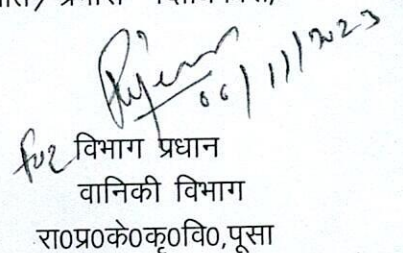 06/11/2023
for विभाग प्रधान
वानिकी विभाग
रा0प्र0के0कृ0वि0,पूसा